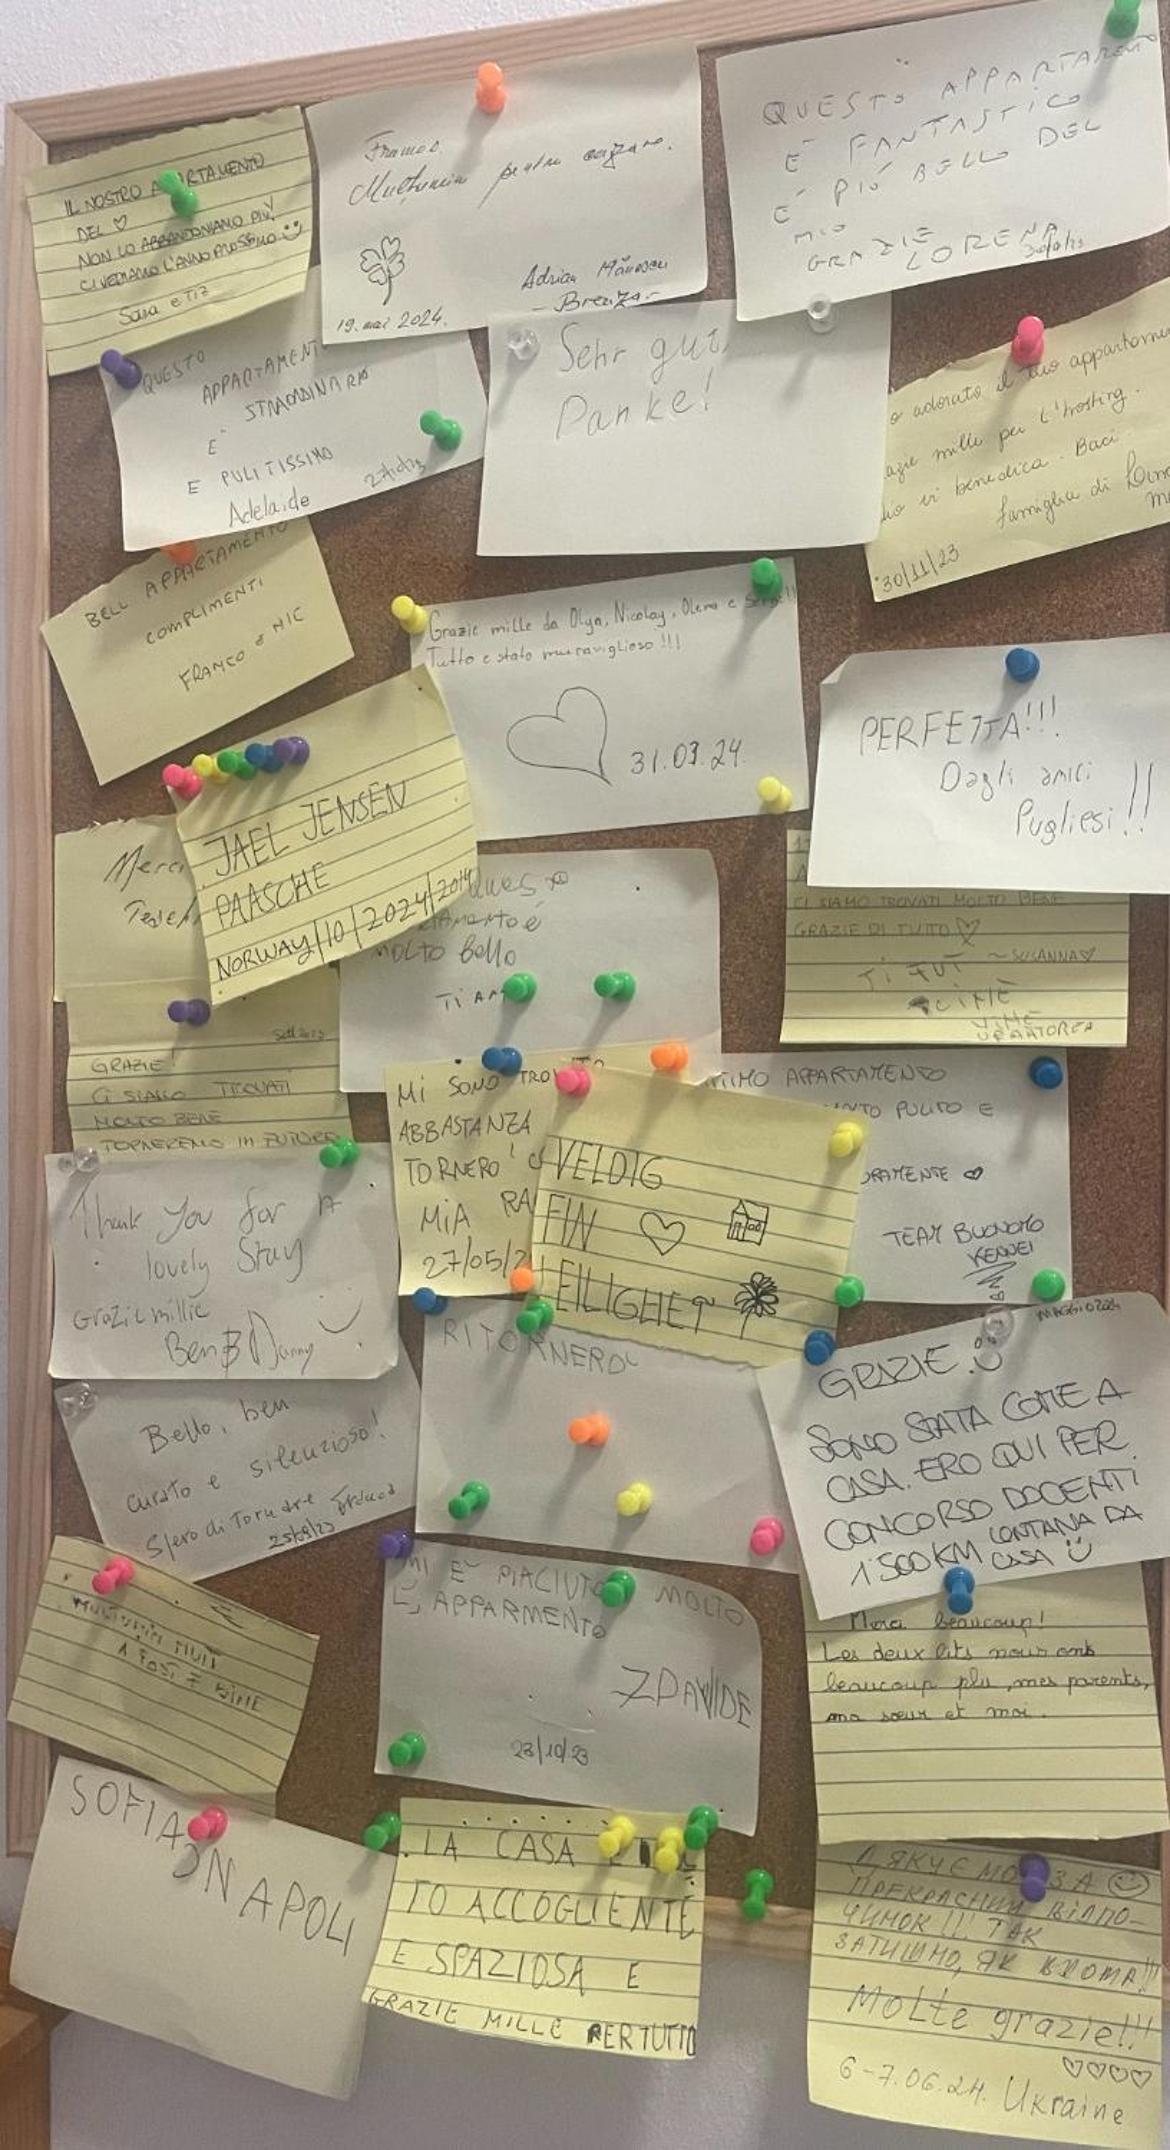 IL NOSTRO APPARTAMENTO
DEL ♡
NON LO ABBANDONIAMO PIÙ
CI VEDIAMO L'ANNO PROSSIMO
Sara e Tiz
Frumos.
Mulțumim pentru cazare.
Adrian
- Breaza -
19. mai 2024.
QUESTO APPARTAMENTO
È FANTASTICO
È PIÙ BELLO DEL
MIO
GRAZIE
LORENA
QUESTO
APPARTAMENT
STRAORDINARIO
E'
E PULITISSIMO
Adelaide
Sehr gut
Danke!
o adorato il tuo appartame
azie mille per l'hosting.
dio vi benedica. Baci
famiglia di
30/11/23
BELL APPARTAMENTO
COMPLIMENTI
FRANCO e NIC
Grazie mille da Olya, Nicolay, Olena e
Tutto e stato muraviglioso !!!
31.03.24.
PERFETTA!!!
Dagli amici
Pugliesi!!
Merci
JAEL JENSEN
PAASCHE
NORWAY/10/2024/2014
Ques
TAMENTO è
MOLTO Bello
Ti AM
CI SIAMO TROVATI MOLTO BENE
GRAZIE DI TUTTO ♡
~ SUSANNA ♡
Sett 2023
GRAZIE!
CI SIAMO TROVATI
MOLTO BENE
TORNEREMO IN FUTURO
Mi SONO TROVATO
ABBASTANZA
TORNERO'
MIA
27/05/2
VELDIG
FIN ♡
LEILIGHET
TIMO APPARTAMENTO
PULITO E
ORAMENTE ♡
TEAM BUONOMO
Thank You for A
lovely Stay
Grazie millie
Ben & Danny
RITORNERO
MAGGIO 2024
GRAZIE
SONO STATA COME A
CASA. ERO QUI PER
CONCORSO DOCENTI
1500KM LONTANA DA
CASA
Bello, ben
curato e silenzioso!
Spero di Tornare
25/09/23
MI È PIACIUTO MOLTO
L, APPARMENTO
DAVIDE
23/10/23
Merci beaucoup!
Les deux lits nous ont
beaucoup plu, mes parents,
ma sœur et moi.
A FOST BINE
SOFIA
NAPOLI
LA CASA È
TO ACCOGLIENTE
E SPAZIOSA E
GRAZIE MILLE PER TUTTO
ДЯКУЄМО ЗА
ПРЕКРАСНИЙ ВІДПО-
ЧИНОК !!! ТАК
ЗАТИШНО, ЯК ВДОМА!!!
Molte grazie!!!
♡♡♡♡
6-7.06.24. Ukraine